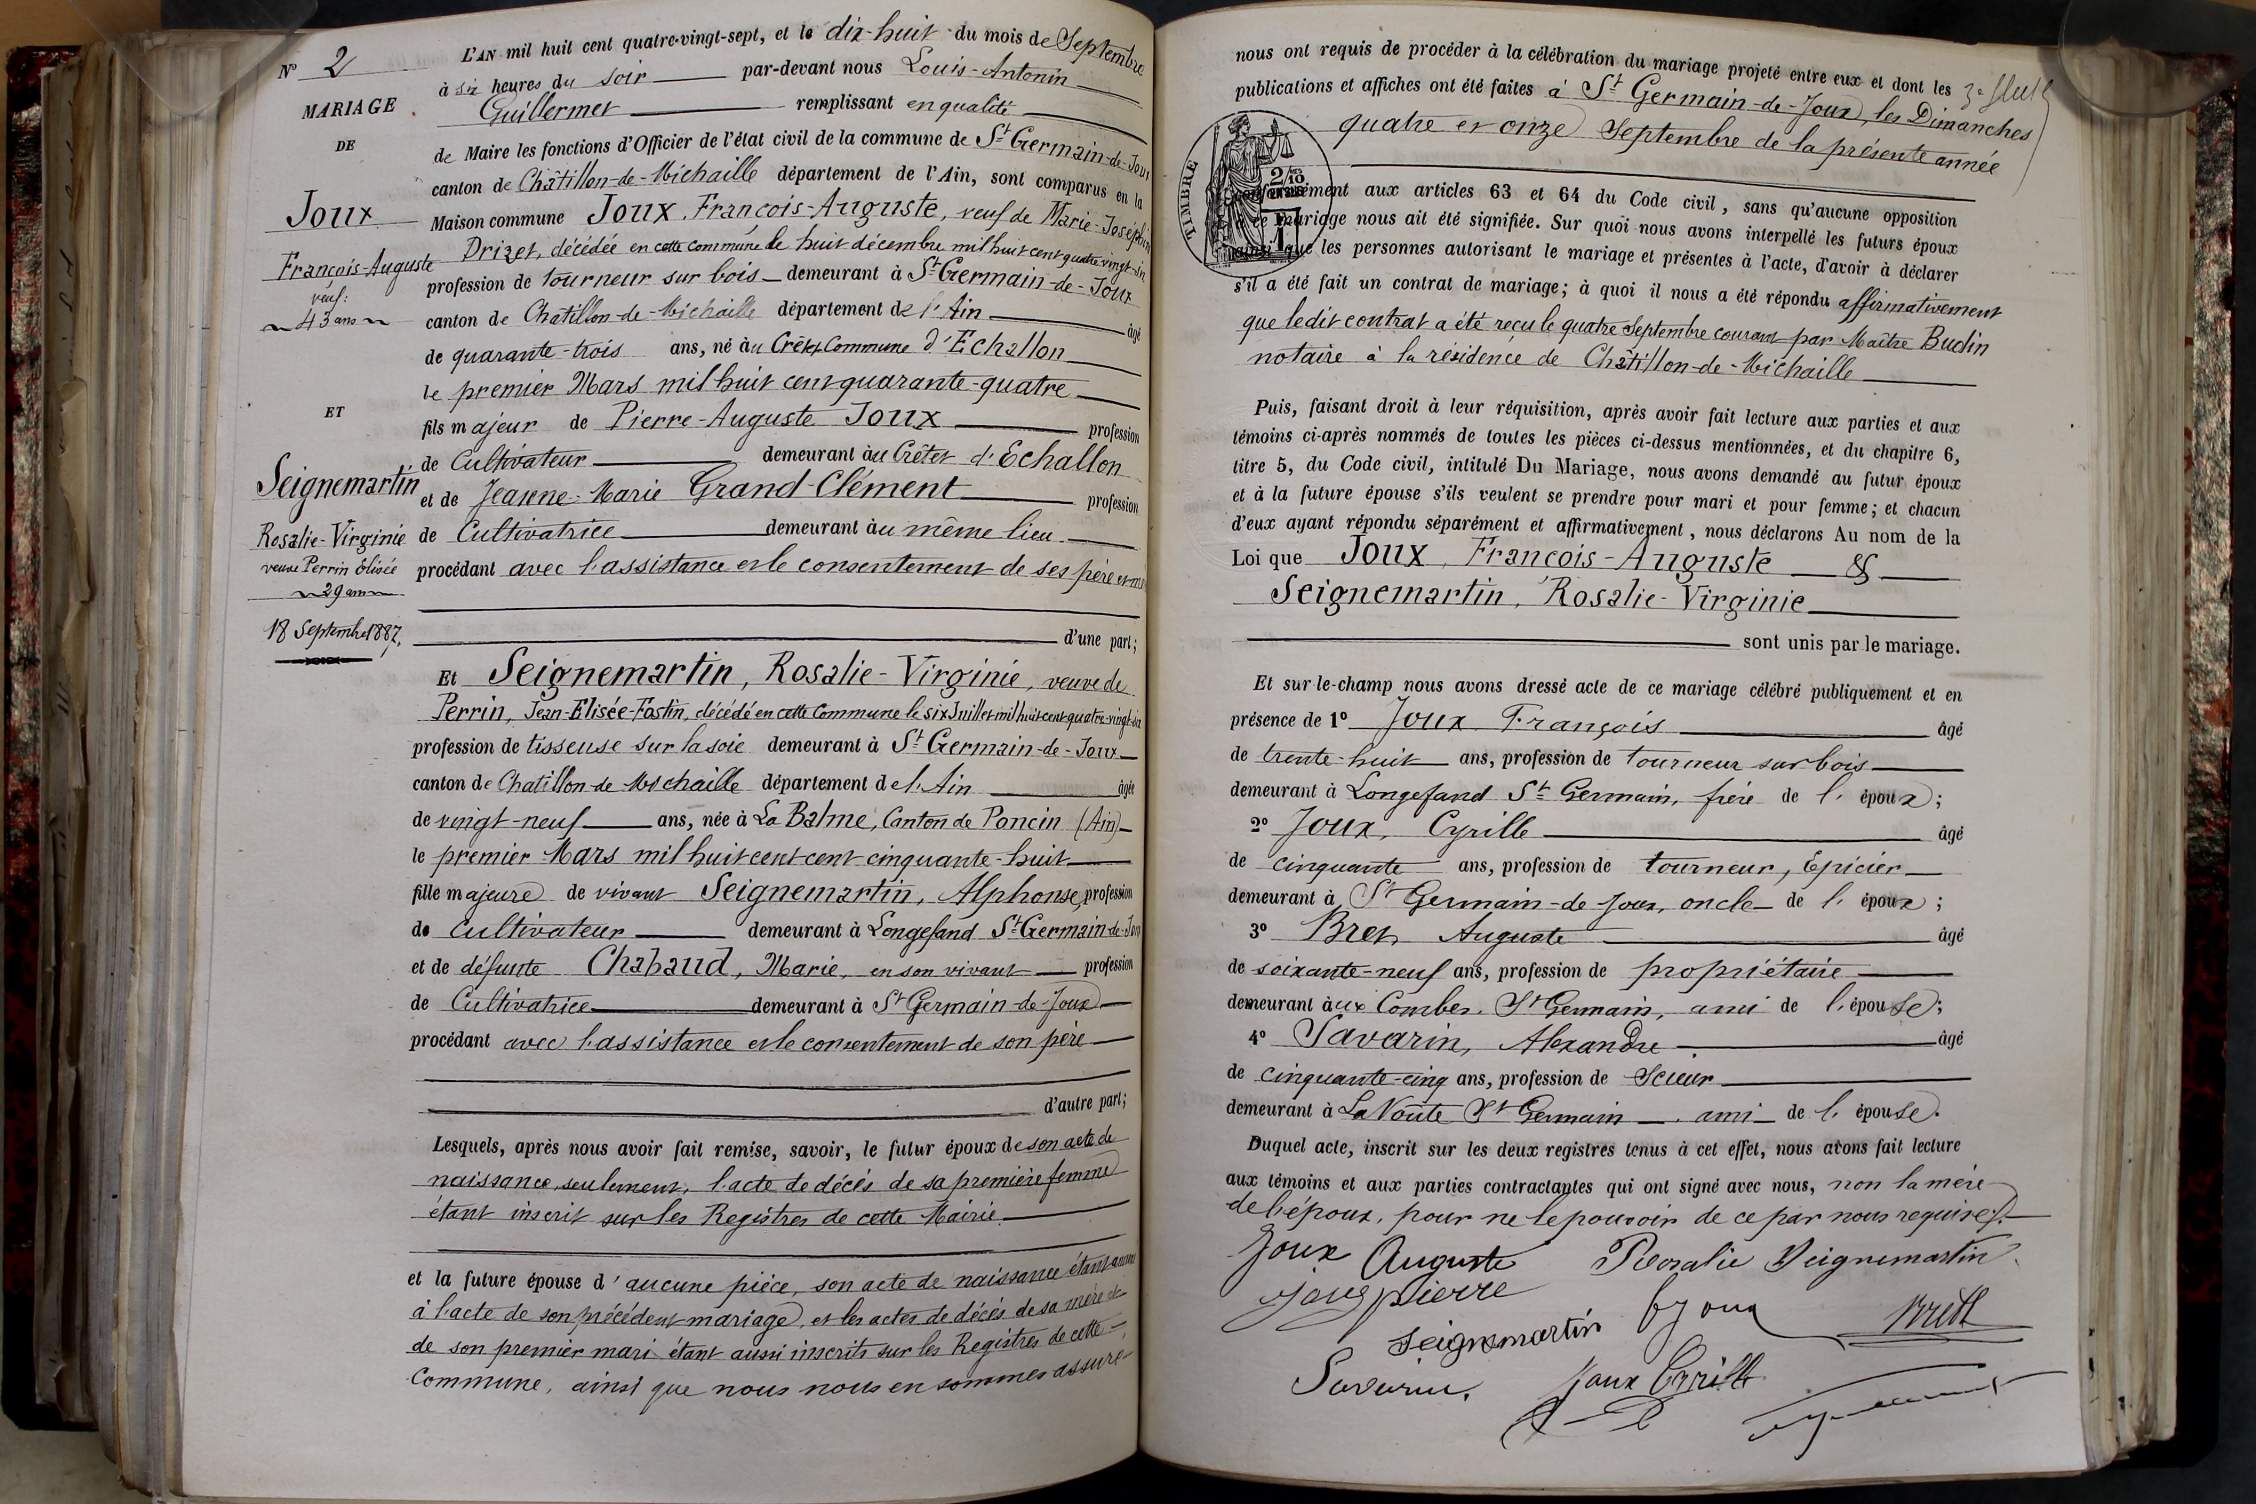 N° 2
MARIAGE
DE
Joux
François-Auguste
veuf:
43 ans
ET
Seignemartin
Rosalie-Virginie
veuve Perrin Elisée
29 ans
18 Septembre 1887.
L'AN mil huit cent quatre-vingt-sept, et le dix-huit du mois de Septembre
à six heures du soir par-devant nous Louis-Antonin
Guillermet remplissant en qualité
de Maire les fonctions d'Officier de l'état civil de la commune de St Germain-de-Joux
canton de Châtillon-de-Michaille département de l'Ain, sont comparus en la
Maison commune Joux, François-Auguste, veuf de Marie-Joséphine
Drizet, décédée en cette commune le huit décembre mil huit cent quatre vingt-six
profession de tourneur sur bois demeurant à St Germain-de-Joux
canton de Chatillon-de-Michaille département de l'Ain âgé
de quarante-trois ans, né au Crêtet Commune d'Echallon
le premier Mars mil huit cent quarante-quatre
fils majeur de Pierre-Auguste Joux profession
de Cultivateur demeurant au Crêtet d'Echallon
et de Jeanne-Marie Grand-Clément profession
de Cultivatrice demeurant au même lieu
procédant avec l'assistance et le consentement de ses père et mère
d'une part;
Et Seignemartin, Rosalie-Virginie, veuve de
Perrin, Jean-Elisée-Fostin, décédé en cette Commune le six Juillet mil huit cent quatre-vingt-six
profession de tisseuse sur la soie demeurant à St Germain-de-Joux
canton de Chatillon-de-Michaille département de l'Ain âgée
de vingt-neuf ans, née à La Balme, Canton de Poncin (Ain)
le premier Mars mil huit cent cent cinquante-huit
fille majeure de vivant Seignemartin, Alphonse, profession
de Cultivateur demeurant à Longefand St Germain-de-Joux
et de défunte Chabaud, Marie, en son vivant profession
de Cultivatrice demeurant à St Germain-de-Joux
procédant avec l'assistance et le consentement de son père
d'autre part;
Lesquels, après nous avoir fait remise, savoir, le futur époux de son acte de
naissance, seulement, l'acte de décès de sa première femme
étant inscrit sur les Registres de cette Mairie.
et la future épouse d'aucune pièce, son acte de naissance étant annexé
à l'acte de son précédent mariage, et les actes de décès de sa mère et
de son premier mari étant aussi inscrits sur les Registres de cette
Commune, ainsi que nous nous en sommes assuré
nous ont requis de procéder à la célébration du mariage projeté entre eux et dont les
publications et affiches ont été faites à St Germain-de-Joux, les Dimanches
quatre et onze Septembre de la présente année
TIMBRE
conformément aux articles 63 et 64 du Code civil, sans qu'aucune opposition
ce mariage nous ait été signifiée. Sur quoi nous avons interpellé les futurs époux
ainsi que les personnes autorisant le mariage et présentes à l'acte, d'avoir à déclarer
s'il a été fait un contrat de mariage; à quoi il nous a été répondu affirmativement
que ledit contrat a été reçu le quatre Septembre courant par Maître Budin
notaire à la résidence de Châtillon-de-Michaille
Puis, faisant droit à leur réquisition, après avoir fait lecture aux parties et aux
témoins ci-après nommés de toutes les pièces ci-dessus mentionnées, et du chapitre 6,
titre 5, du Code civil, intitulé Du Mariage, nous avons demandé au futur époux
et à la future épouse s'ils veulent se prendre pour mari et pour femme; et chacun
d'eux ayant répondu séparément et affirmativement, nous déclarons Au nom de la
Loi que Joux, François-Auguste &
Seignemartin, Rosalie-Virginie
sont unis par le mariage.
Et sur-le-champ nous avons dressé acte de ce mariage célébré publiquement et en
présence de 1° Joux François âgé
de trente-huit ans, profession de tourneur sur bois
demeurant à Longefand St Germain, frère de l'époux;
2° Joux, Cyrille âgé
de cinquante ans, profession de tourneur, Epicier
demeurant à St Germain-de-Joux, oncle de l'époux;
3° Bret, Auguste âgé
de soixante-neuf ans, profession de propriétaire
demeurant aux Combes St Germain, ami de l'épouse;
4° Savarin, Alexandre âgé
de cinquante-cinq ans, profession de Scieur
demeurant à La Voute St Germain, ami de l'épouse.
Duquel acte, inscrit sur les deux registres tenus à cet effet, nous avons fait lecture
aux témoins et aux parties contractantes qui ont signé avec nous, non la mère
de l'époux, pour ne le pouvoir de ce par nous requise.
Joux Auguste Rosalie Seignemartin
Joux pierre
seignemartin f joux Bret
Savarin. Joux Cyrille